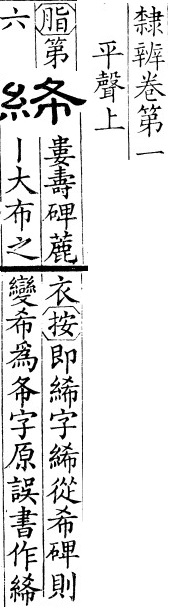 隸辨卷第一
平聲上
脂第
六
絺
婁壽碑蔍
丨大布之
衣按即絺字絺從希碑則
變希為字原誤書作絺